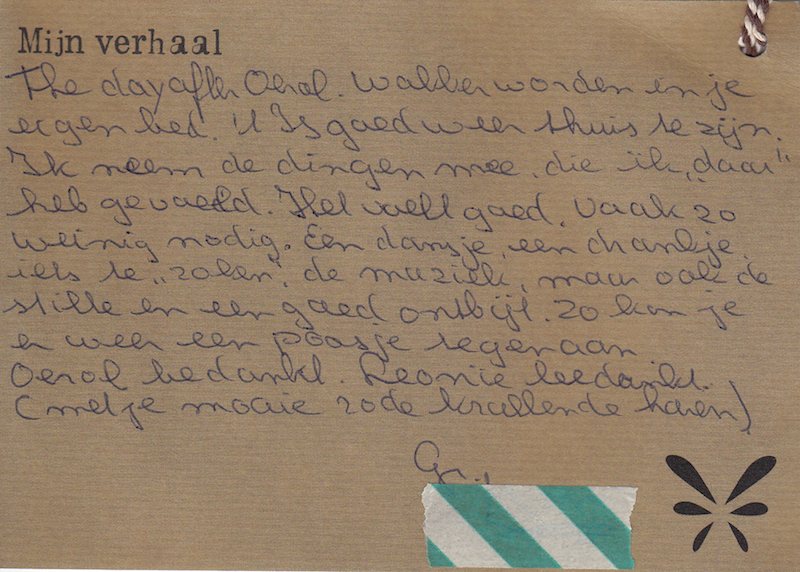 Mijn verhaal
The day after Oerol. Wakker worden in je
eigen bed. 't Is goed weer thuis te zijn.
Ik neem de dingen mee, die ik, "daar"
heb gevoeld. Het voelt goed. Vaak zo
weinig nodig. Een dansje, een drankje,
iets te "roken", de muziek, maar ook de
stilte en een goed ontbijt. Zo kan je
er weer een poosje tegenaan.
Oerol bedankt. Leonie bedankt.
(met je mooie rode krullende haren)
Gr.,